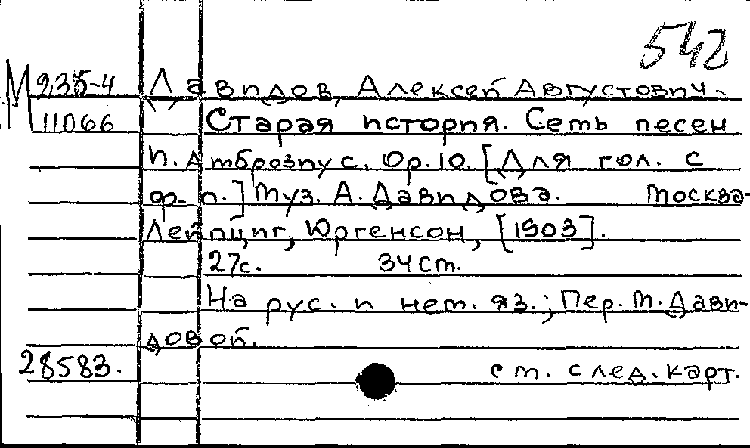 542
М 9,35-4 Давидов, Алексей Августович.
11066 Старая история. Семь песен
п. Амброзиус. Op. 10. [Для гол. с
ф-п.] Муз. А. Давидова. Москва-
Лейпциг, Юргенсон, [1903].
27с. 34см.
На рус. и нем. яз.; Пер. М. Дави-
довой.
28583. см. след. карт.